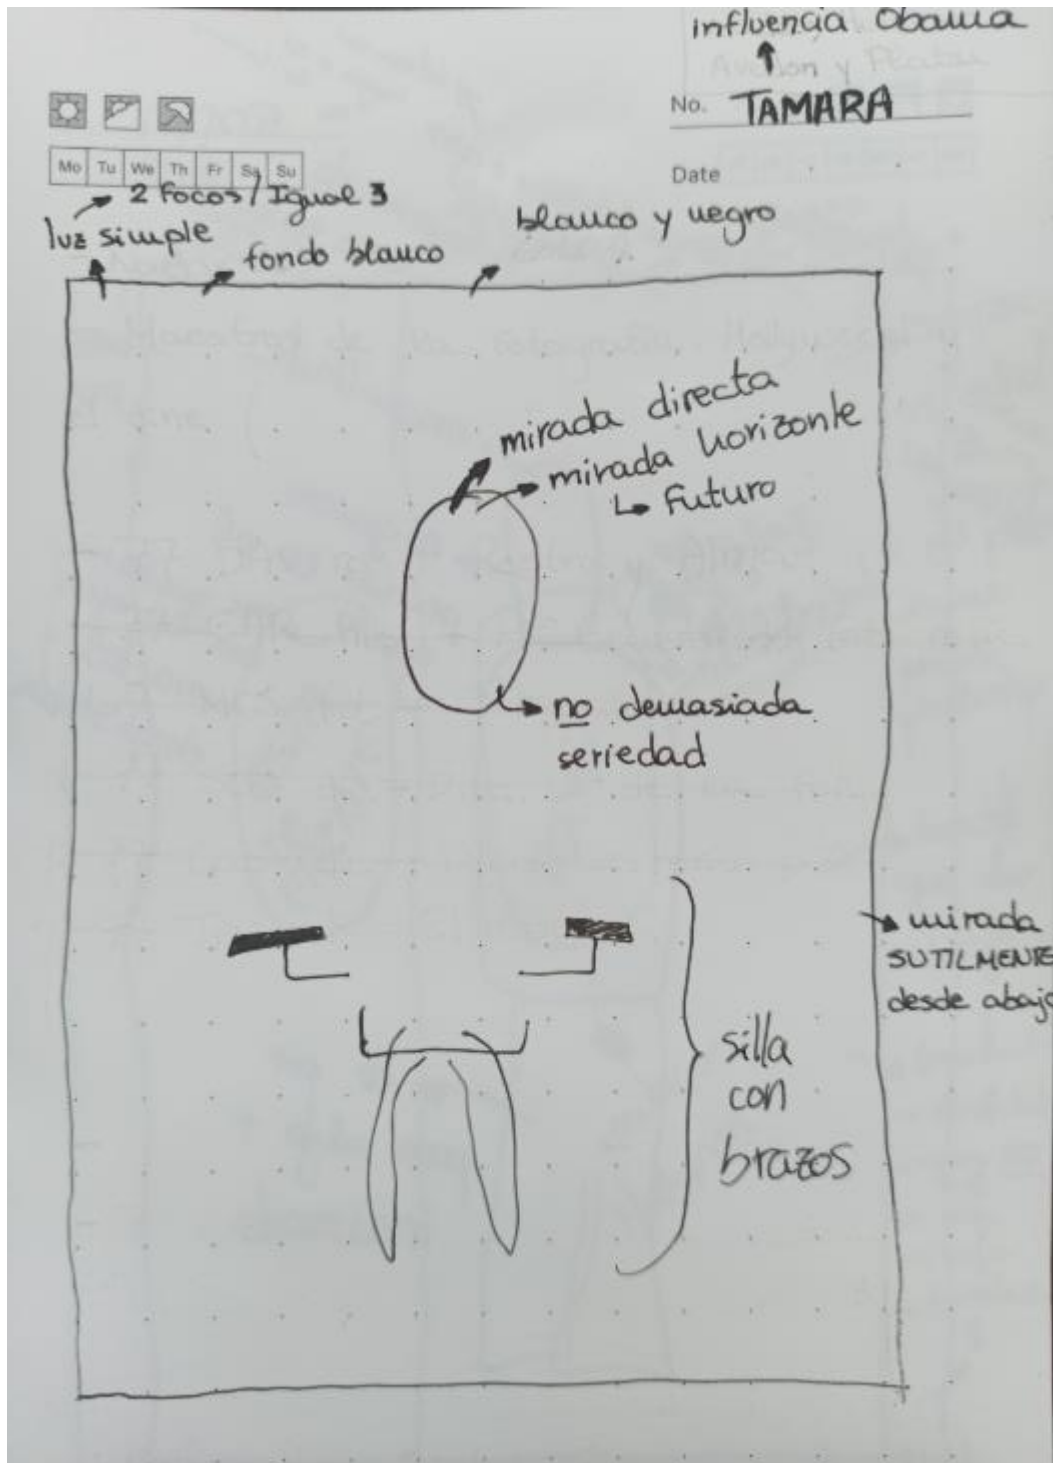 influencia Obama
Avedon y Platon
No. TAMARA
Mo Tu We Th Fr Sa Su
Date
2 Focos / Igual 3
luz simple
fondo blanco
blanco y negro
mirada directa
mirada horizonte
Futuro
no demasiada
seriedad
mirada
SUTILMENTE
desde abajo
silla
con
brazos